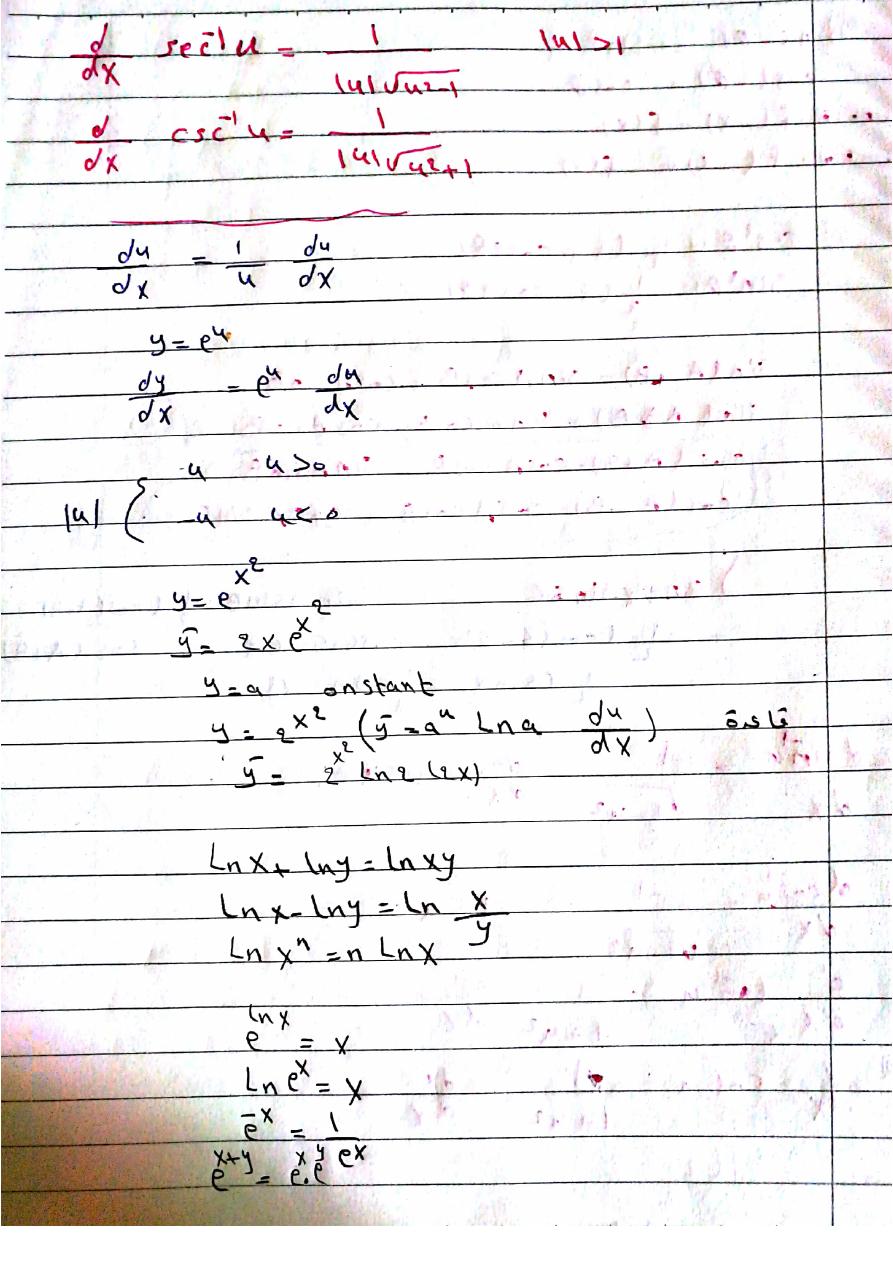 d/dx sec⁻¹ u = 1/(|u|√(u²-1)) |u| > 1
d/dx csc⁻¹ u = 1/(|u|√u²+1)
du/dx = 1/u du/dx
y = e^u
dy/dx = e^u . du/dx
|u| { u u > 0
-u u < 0
y = e^x²
ȳ = 2x e^x²
y = a onstant
y = 2^x² (ȳ = a^u Ln a du/dx)
ȳ = 2^x² Ln 2 (2x)
Ln x + lny = ln xy
Ln x - lny = Ln x/y
Ln xⁿ = n Ln x
e^lnx = x
Ln e^x = x
e^-x = 1/e^x
e^x+y = e^x . e^y